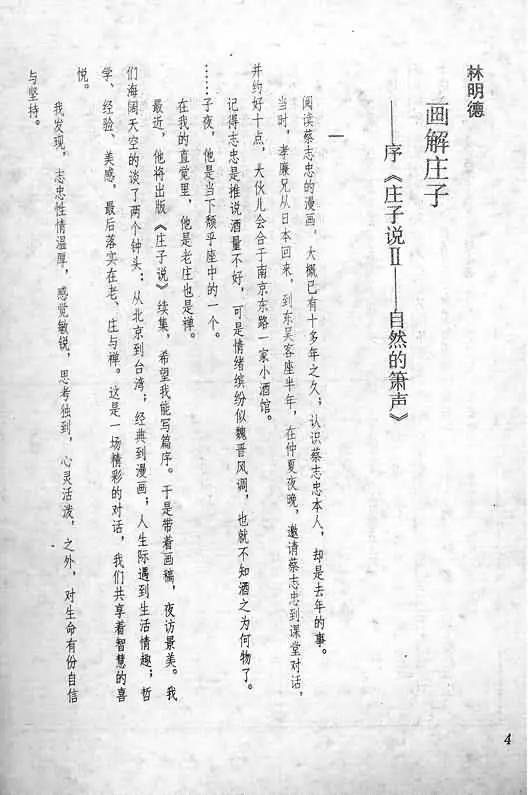 林明德
画解庄子
——序《庄子说Ⅱ——自然的箫声》
一
阅读蔡志忠的漫画，大概已有十多年之久；认识蔡志忠本人，却是去年的事。
当时，孝廉兄从日本回来，到东吴客座半年，在仲夏夜晚，邀请蔡志忠到课堂对话，
并约好十点，大伙儿会合于南京东路一家小酒馆。
记得志忠是推说酒量不好，可是情绪缤纷似魏晋风调，也就不知酒之为何物了。
……子夜，他是当下颓乎座中的一个。
在我的直觉里，他是老庄也是禅。
最近，他将出版《庄子说》续集，希望我能写篇序。于是带着画稿，夜访景美。我
们海阔天空的谈了两个钟头；从北京到台湾；经典到漫画；人生际遇到生活情趣；哲
学、经验、美感，最后落实在老、庄与禅。这是一场精彩的对话，我们共享着智慧的喜
悦。
我发现，志忠性情温厚，感觉敏锐，思考独到，心灵活泼，之外，对生命有份自信
与坚持。
4